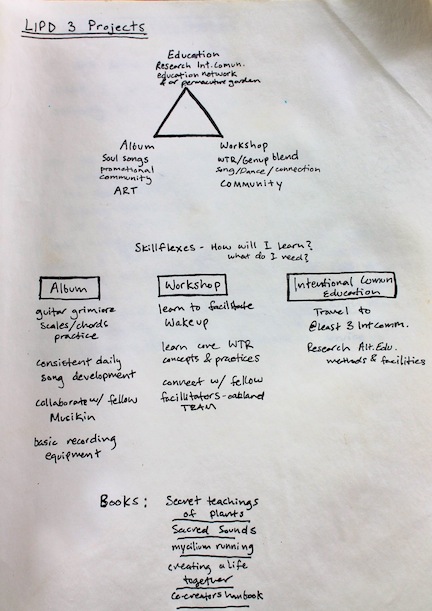 LIPD 3 Projects
Education
Research Int. Comun.
education network
& or permaculture garden
Album
Soul songs
promotional
community
ART
Workshop
WTR/Genup blend
Song/Dance/connection
Community
Skillflexes - How will I learn?
what do I need?
Album
guitar grimiore
scales/chords
practice
consistent daily
song development
collaborate w/ fellow
Musikin
basic recording
equipment
Workshop
learn to facilitate
Wakeup
learn core WTR
concepts & practices
connect w/ fellow
facilitators - oakland
TEAM
Intentional Comun
Education
Travel to
@least 3 Int comm.
Research Alt. Edu.
methods & facilities
Books: Secret teachings
of plants
Sacred Sounds
mycilium running
creating a life
together
Co-creators hanbook